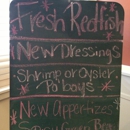 Fresh Redfish
New Dressings
Shrimp or Oyster
Po'boys
New Appetizers